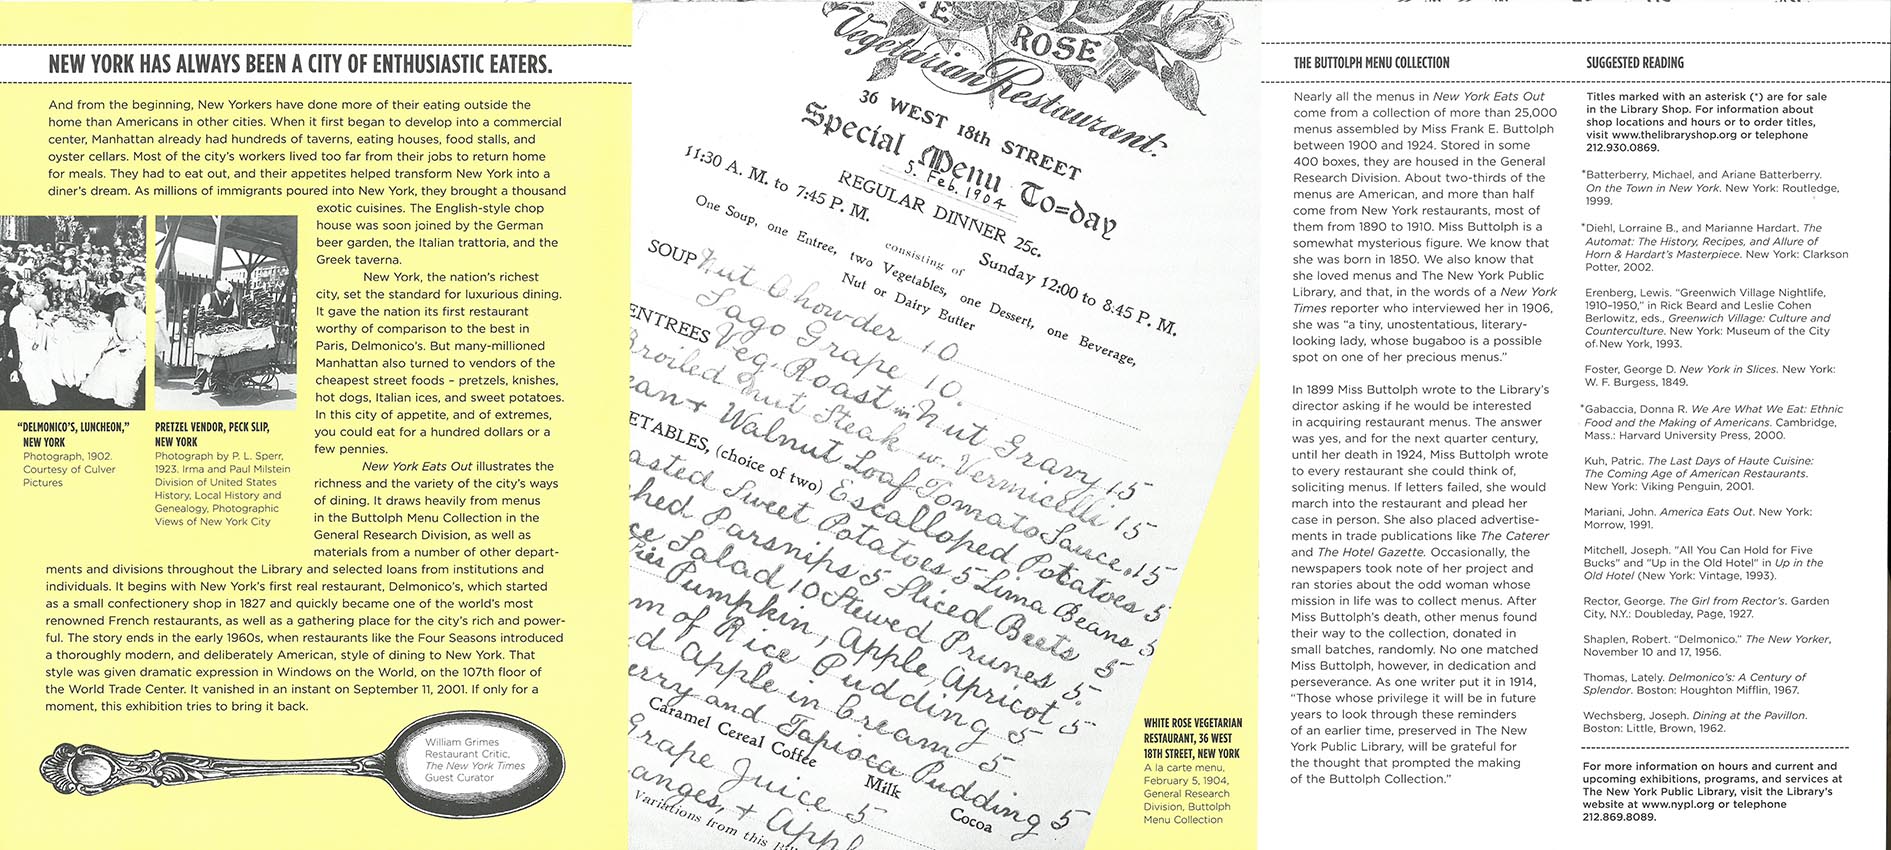 NEW YORK HAS ALWAYS BEEN A CITY OF ENTHUSIASTIC EATERS.
And from the beginning, New Yorkers have done more of their eating outside the
home than Americans in other cities. When it first began to develop into a commercial
center, Manhattan already had hundreds of taverns, eating houses, food stalls, and
oyster cellars. Most of the city's workers lived too far from their jobs to return home
for meals. They had to eat out, and their appetites helped transform New York into a
diner's dream. As millions of immigrants poured into New York, they brought a thousand
exotic cuisines. The English-style chop
house was soon joined by the German
beer garden, the Italian trattoria, and the
Greek taverna.
New York, the nation's richest
city, set the standard for luxurious dining.
It gave the nation its first restaurant
worthy of comparison to the best in
Paris, Delmonico's. But many-millioned
Manhattan also turned to vendors of the
cheapest street foods – pretzels, knishes,
hot dogs, Italian ices, and sweet potatoes.
In this city of appetite, and of extremes,
you could eat for a hundred dollars or a
few pennies.
New York Eats Out illustrates the
richness and the variety of the city's ways
of dining. It draws heavily from menus
in the Buttolph Menu Collection in the
General Research Division, as well as
materials from a number of other depart-
ments and divisions throughout the Library and selected loans from institutions and
individuals. It begins with New York's first real restaurant, Delmonico's, which started
as a small confectionery shop in 1827 and quickly became one of the world's most
renowned French restaurants, as well as a gathering place for the city's rich and power-
ful. The story ends in the early 1960s, when restaurants like the Four Seasons introduced
a thoroughly modern, and deliberately American, style of dining to New York. That
style was given dramatic expression in Windows on the World, on the 107th floor of
the World Trade Center. It vanished in an instant on September 11, 2001. If only for a
moment, this exhibition tries to bring it back.
"DELMONICO'S, LUNCHEON,"
NEW YORK
Photograph, 1902.
Courtesy of Culver
Pictures
PRETZEL VENDOR, PECK SLIP,
NEW YORK
Photograph by P. L. Sperr,
1923. Irma and Paul Milstein
Division of United States
History, Local History and
Genealogy, Photographic
Views of New York City
William Grimes
Restaurant Critic,
The New York Times
Guest Curator
ROSE
Vegetarian Restaurant.
36 WEST 18th STREET
Special Menu To=day
5. Feb. 1904
11:30 A. M. to 7:45 P. M.
Sunday 12:00 to 8:45 P. M.
REGULAR DINNER 25c.
consisting of
One Soup, one Entree, two Vegetables, one Dessert, one Beverage,
Nut or Dairy Butter
SOUP Nut Chowder 10
Sago Grape 10.
ENTREES Veg. Roast in Nut Gravy 15
Broiled nut Steak w. Vermicelli 15
ean + Walnut Loaf Tomato Sauce. 15
ETABLES, (choice of two) Escalloped Potatoes 5
asted Sweet Potatoes 5 Lima Beans 5
hed Parsnips 5 Sliced Beets 5
ce Salad 10 Stewed Prunes 5
Pies Pumpkin, Apple, Apricot 5
m of Rice Pudding 5
d Apple in Cream 5
erry and Tapioca Pudding 5
Caramel Cereal Coffee Milk Cocoa
Grape Juice 5
anges, + Appl
Variations from this
WHITE ROSE VEGETARIAN
RESTAURANT, 36 WEST
18TH STREET, NEW YORK
A la carte menu,
February 5, 1904,
General Research
Division, Buttolph
Menu Collection
THE BUTTOLPH MENU COLLECTION
Nearly all the menus in New York Eats Out
come from a collection of more than 25,000
menus assembled by Miss Frank E. Buttolph
between 1900 and 1924. Stored in some
400 boxes, they are housed in the General
Research Division. About two-thirds of the
menus are American, and more than half
come from New York restaurants, most of
them from 1890 to 1910. Miss Buttolph is a
somewhat mysterious figure. We know that
she was born in 1850. We also know that
she loved menus and The New York Public
Library, and that, in the words of a New York
Times reporter who interviewed her in 1906,
she was "a tiny, unostentatious, literary-
looking lady, whose bugaboo is a possible
spot on one of her precious menus."
In 1899 Miss Buttolph wrote to the Library's
director asking if he would be interested
in acquiring restaurant menus. The answer
was yes, and for the next quarter century,
until her death in 1924, Miss Buttolph wrote
to every restaurant she could think of,
soliciting menus. If letters failed, she would
march into the restaurant and plead her
case in person. She also placed advertise-
ments in trade publications like The Caterer
and The Hotel Gazette. Occasionally, the
newspapers took note of her project and
ran stories about the odd woman whose
mission in life was to collect menus. After
Miss Buttolph's death, other menus found
their way to the collection, donated in
small batches, randomly. No one matched
Miss Buttolph, however, in dedication and
perseverance. As one writer put it in 1914,
"Those whose privilege it will be in future
years to look through these reminders
of an earlier time, preserved in The New
York Public Library, will be grateful for
the thought that prompted the making
of the Buttolph Collection."
SUGGESTED READING
Titles marked with an asterisk (*) are for sale
in the Library Shop. For information about
shop locations and hours or to order titles,
visit www.thelibraryshop.org or telephone
212.930.0869.
*Batterberry, Michael, and Ariane Batterberry.
On the Town in New York. New York: Routledge,
1999.
*Diehl, Lorraine B., and Marianne Hardart. The
Automat: The History, Recipes, and Allure of
Horn & Hardart's Masterpiece. New York: Clarkson
Potter, 2002.
Erenberg, Lewis. "Greenwich Village Nightlife,
1910–1950," in Rick Beard and Leslie Cohen
Berlowitz, eds., Greenwich Village: Culture and
Counterculture. New York: Museum of the City
of New York, 1993.
Foster, George D. New York in Slices. New York:
W. F. Burgess, 1849.
*Gabaccia, Donna R. We Are What We Eat: Ethnic
Food and the Making of Americans. Cambridge,
Mass.: Harvard University Press, 2000.
Kuh, Patric. The Last Days of Haute Cuisine:
The Coming Age of American Restaurants.
New York: Viking Penguin, 2001.
Mariani, John. America Eats Out. New York:
Morrow, 1991.
Mitchell, Joseph. "All You Can Hold for Five
Bucks" and "Up in the Old Hotel" in Up in the
Old Hotel (New York: Vintage, 1993).
Rector, George. The Girl from Rector's. Garden
City, N.Y.: Doubleday, Page, 1927.
Shaplen, Robert. "Delmonico." The New Yorker,
November 10 and 17, 1956.
Thomas, Lately. Delmonico's: A Century of
Splendor. Boston: Houghton Mifflin, 1967.
Wechsberg, Joseph. Dining at the Pavillon.
Boston: Little, Brown, 1962.
For more information on hours and current and
upcoming exhibitions, programs, and services at
The New York Public Library, visit the Library's
website at www.nypl.org or telephone
212.869.8089.